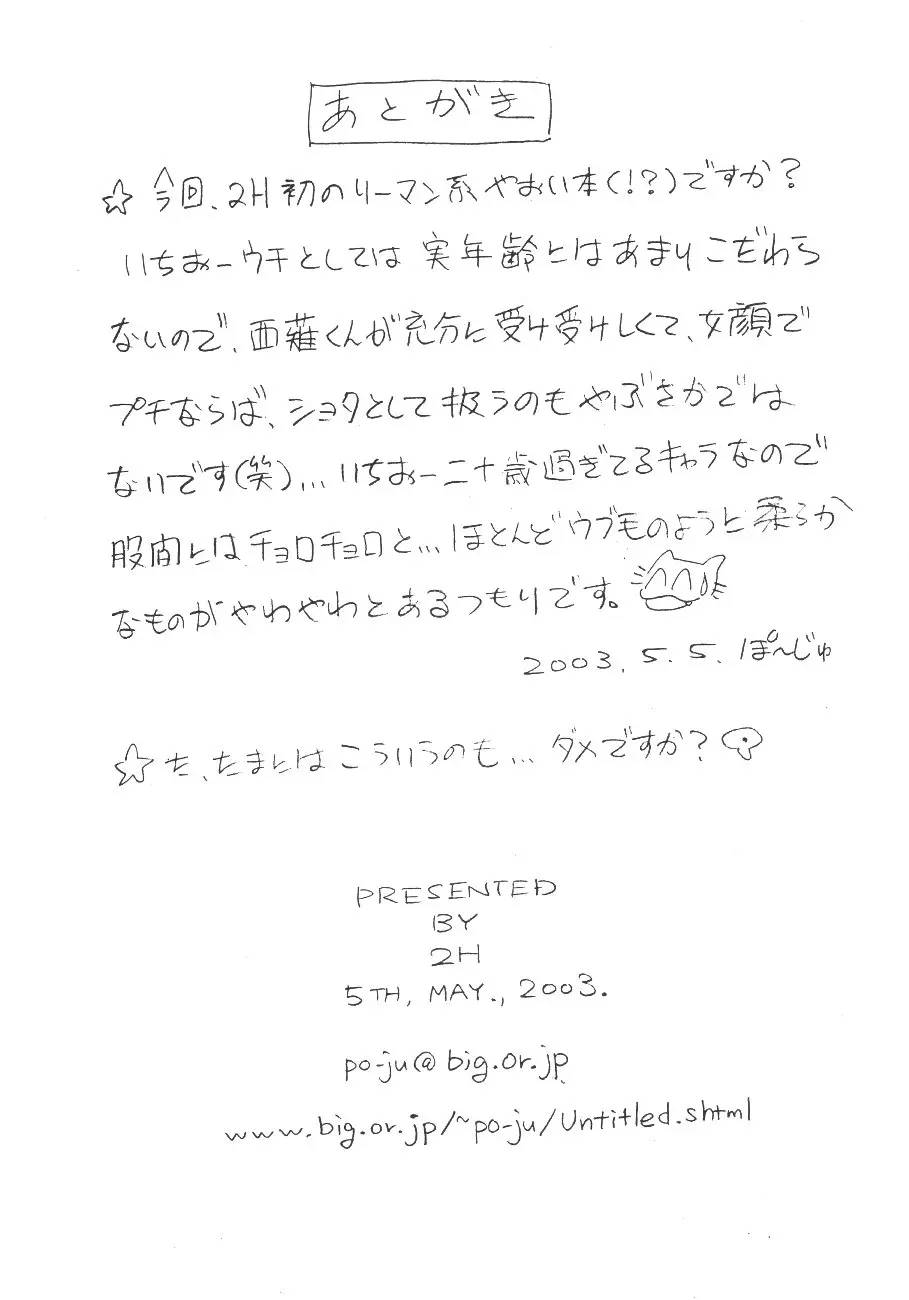 あとがき
☆今回、2H初のリーマン系やおい本(!?)ですか?
いちおーウチとしては実年齢にはあまりこだわら
ないので、西薙くんが充分に受け受けしくて、女顔で
プチならば、ショタとして扱うのもやぶさかでは
ないです(笑)…いちおー二十歳過ぎてるキャラなので
股間にはチョロチョロと…ほとんどウブ毛のように柔らか
なものがやわやわとあるつもりです。
2003.5.5.ぽ〜じゅ
☆た、たまにはこういうのも…ダメですか?
PRESENTED
BY
2H
5TH, MAY., 2003.
po-ju@big.or.jp
www.big.or.jp/~po-ju/Untitled.shtml